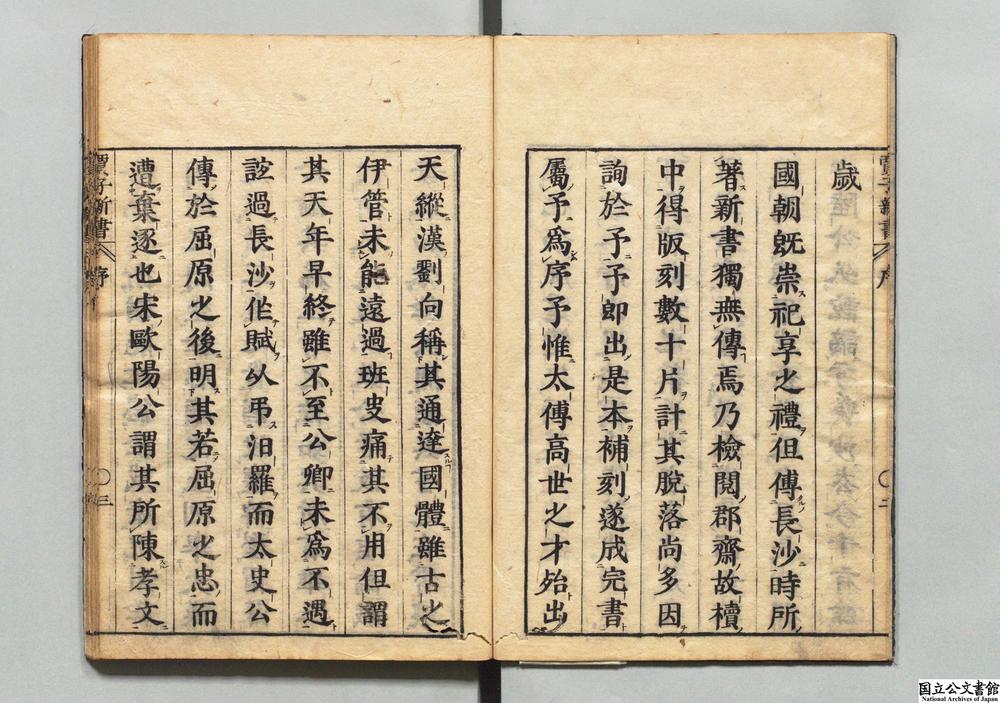 歲
國朝既崇祀享之禮但傅長沙時所
著新書獨無傳焉乃檢閱郡齋故櫝
中得版刻數十片計其脫落尚多因
詢於予予即出是本補刻遂成完書
屬予為序予惟太傅高世之才殆出
天縱漢劉向稱其通達國體雖古之
伊管未能遠過班史痛其不用但謂
其天年早終雖不至公卿未為不遇
誼過長沙作賦以弔汨羅而太史公
傳於屈原之後明其若屈原之忠而
遭棄逐也宋歐陽公謂其所陳孝文
賈子新書 序 〇二
賈子新書 序 〇三
国立公文書館
National Archives of Japan